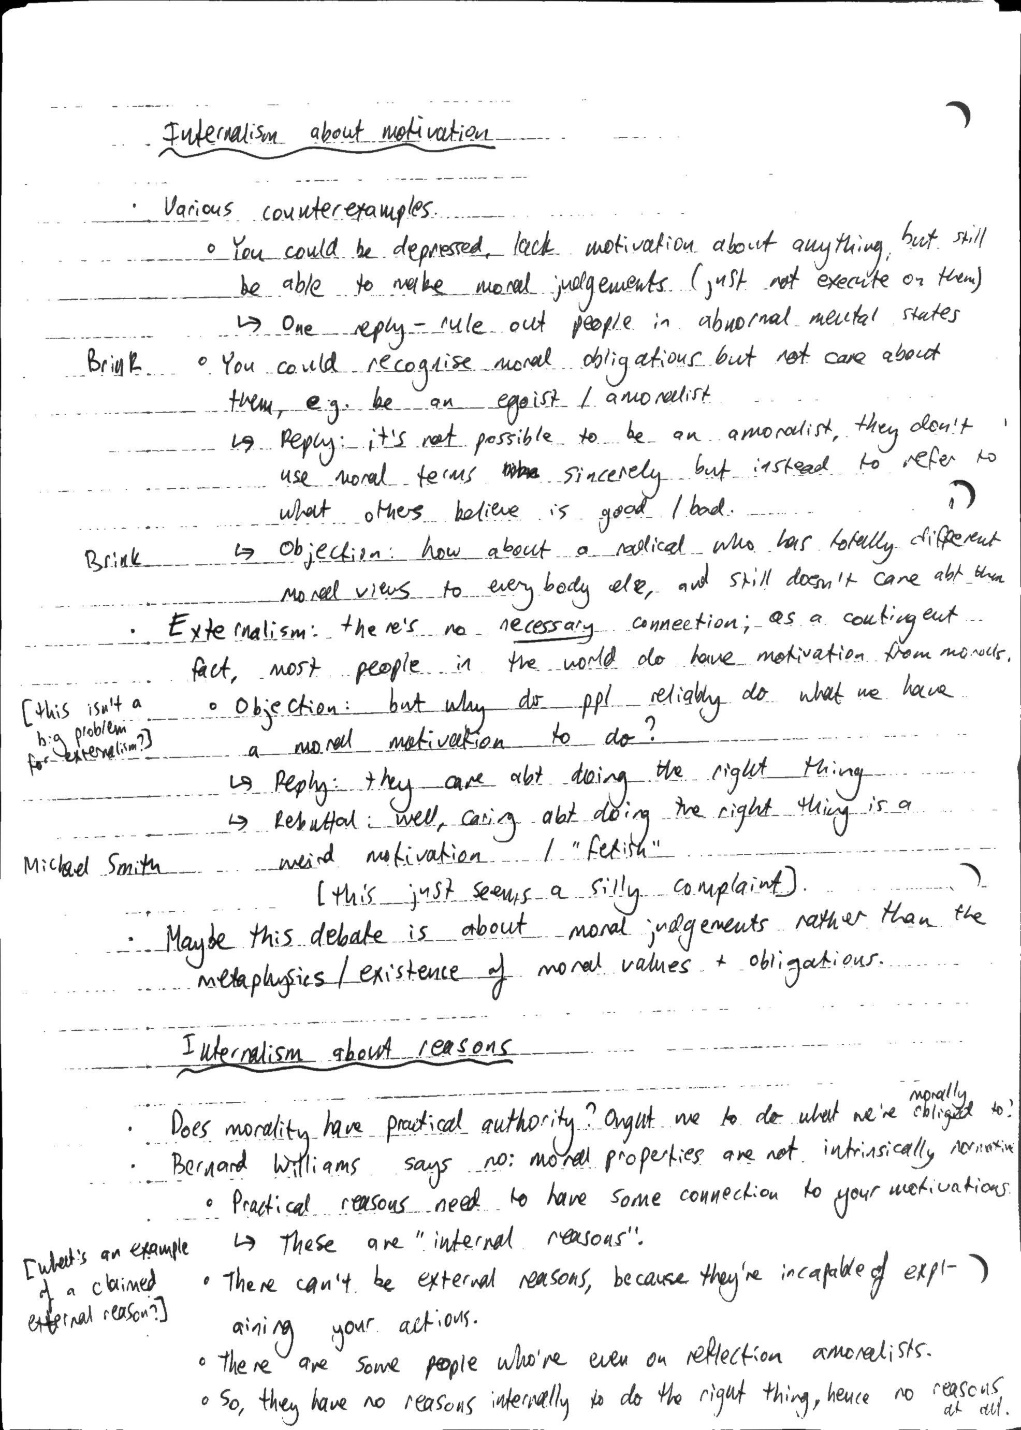 Internalism about motivation
· Various counterexamples.
◦ You could be depressed, lack motivation about anything, but still
be able to make moral judgements (just not execute on them)
↳ One reply - rule out people in abnormal mental states
Brink ◦ You could recognise moral obligations but not care about
them, e.g. be an egoist / amoralist
↳ Reply: it's not possible to be an amoralist, they don't
use moral terms sincerely but instead to refer to
what others believe is good / bad.
Brink ↳ Objection: how about a radical who has totally different
moral views to everybody else, and still doesn't care abt them
· Externalism: there's no necessary connection; as a contingent
fact, most people in the world do have motivation from morals.
[this isn't a
big problem
for externalism?]
◦ Objection: but why do ppl reliably do what we have
a moral motivation to do?
↳ Reply: they care abt doing the right thing
↳ Rebuttal: well, caring abt doing the right thing is a
Michael Smith weird motivation / "fetish"
[this just seems a silly complaint].
· Maybe this debate is about moral judgements rather than the
metaphysics / existence of moral values + obligations.
Internalism about reasons
· Does morality have practical authority? Ought we to do what we're morally obliged to?
· Bernard Williams says no: moral properties are not intrinsically normative
◦ Practical reasons need to have some connection to your motivations.
↳ These are "internal reasons".
[what's an example
of a claimed
external reason?]
◦ There can't be external reasons, because they're incapable of expl-
aining your actions.
◦ There are some people who're even on reflection amoralists.
◦ So, they have no reasons internally to do the right thing, hence no reasons
at all.